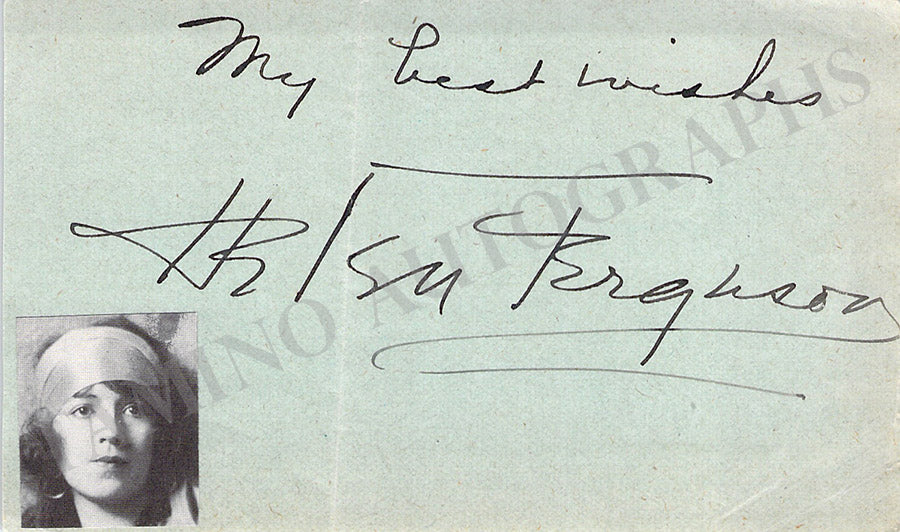 My best wishes
Helen Ferguson
TAMINO AUTOGRAPHS